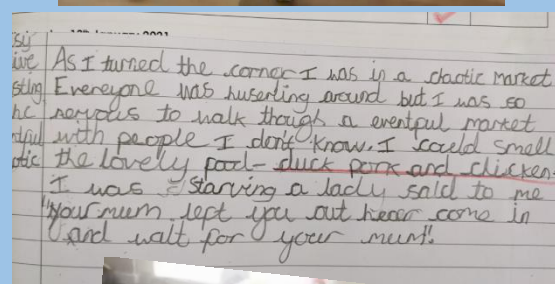 As I turned the corner I was in a chaotic market
Evereyone was huserling around but I was so
nervous to walk though a eventful market
with people I don't know. I could smell
the lovely food - duck pork and chicken.
I was starving a lady said to me
"your mum left you out heear come in
and wait for your mum".